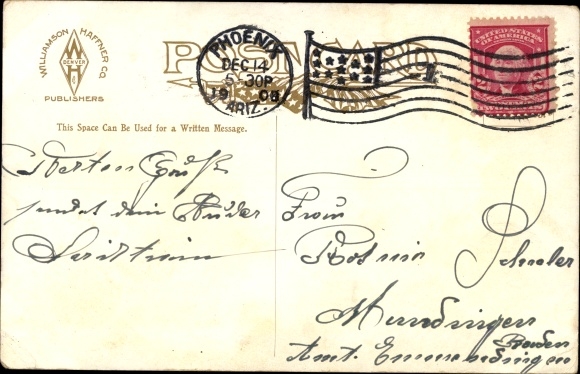 WILLIAMSON HAFFNER CO.
DENVER
PUBLISHERS
POST CARD
PHOENIX
DEC 14
5-30P
1908
ARIZ.
1
UNITED STATES OF AMERICA
This Space Can Be Used for a Written Message.
Gruß
sendet dein Bruder
Frau
Rosine Schuler
Mundingen
Baden
Amt. Emmendingen